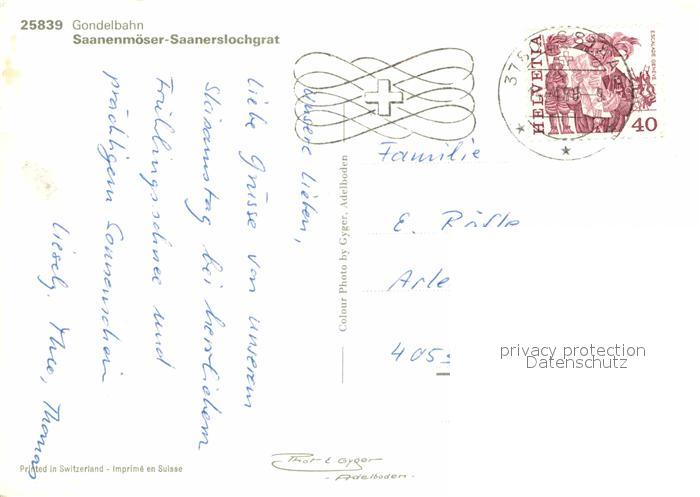 25839 Gondelbahn
Saanenmöser-Saanerslochgrat
Unsere Lieben,
liebe Grüsse von unserem
Skisamstag bei herrlichem
Frühlingsschnee und
prächtigem Sonnenschein
Liesely, Theo, Thomas
Colour Photo by Gyger, Adelboden
Familie
E.
405
privacy protection
Datenschutz
HELVETIA
ESCALADE GENÈVE
40
Phot E Gyger
- Adelboden -
Printed in Switzerland - Imprimé en Suisse